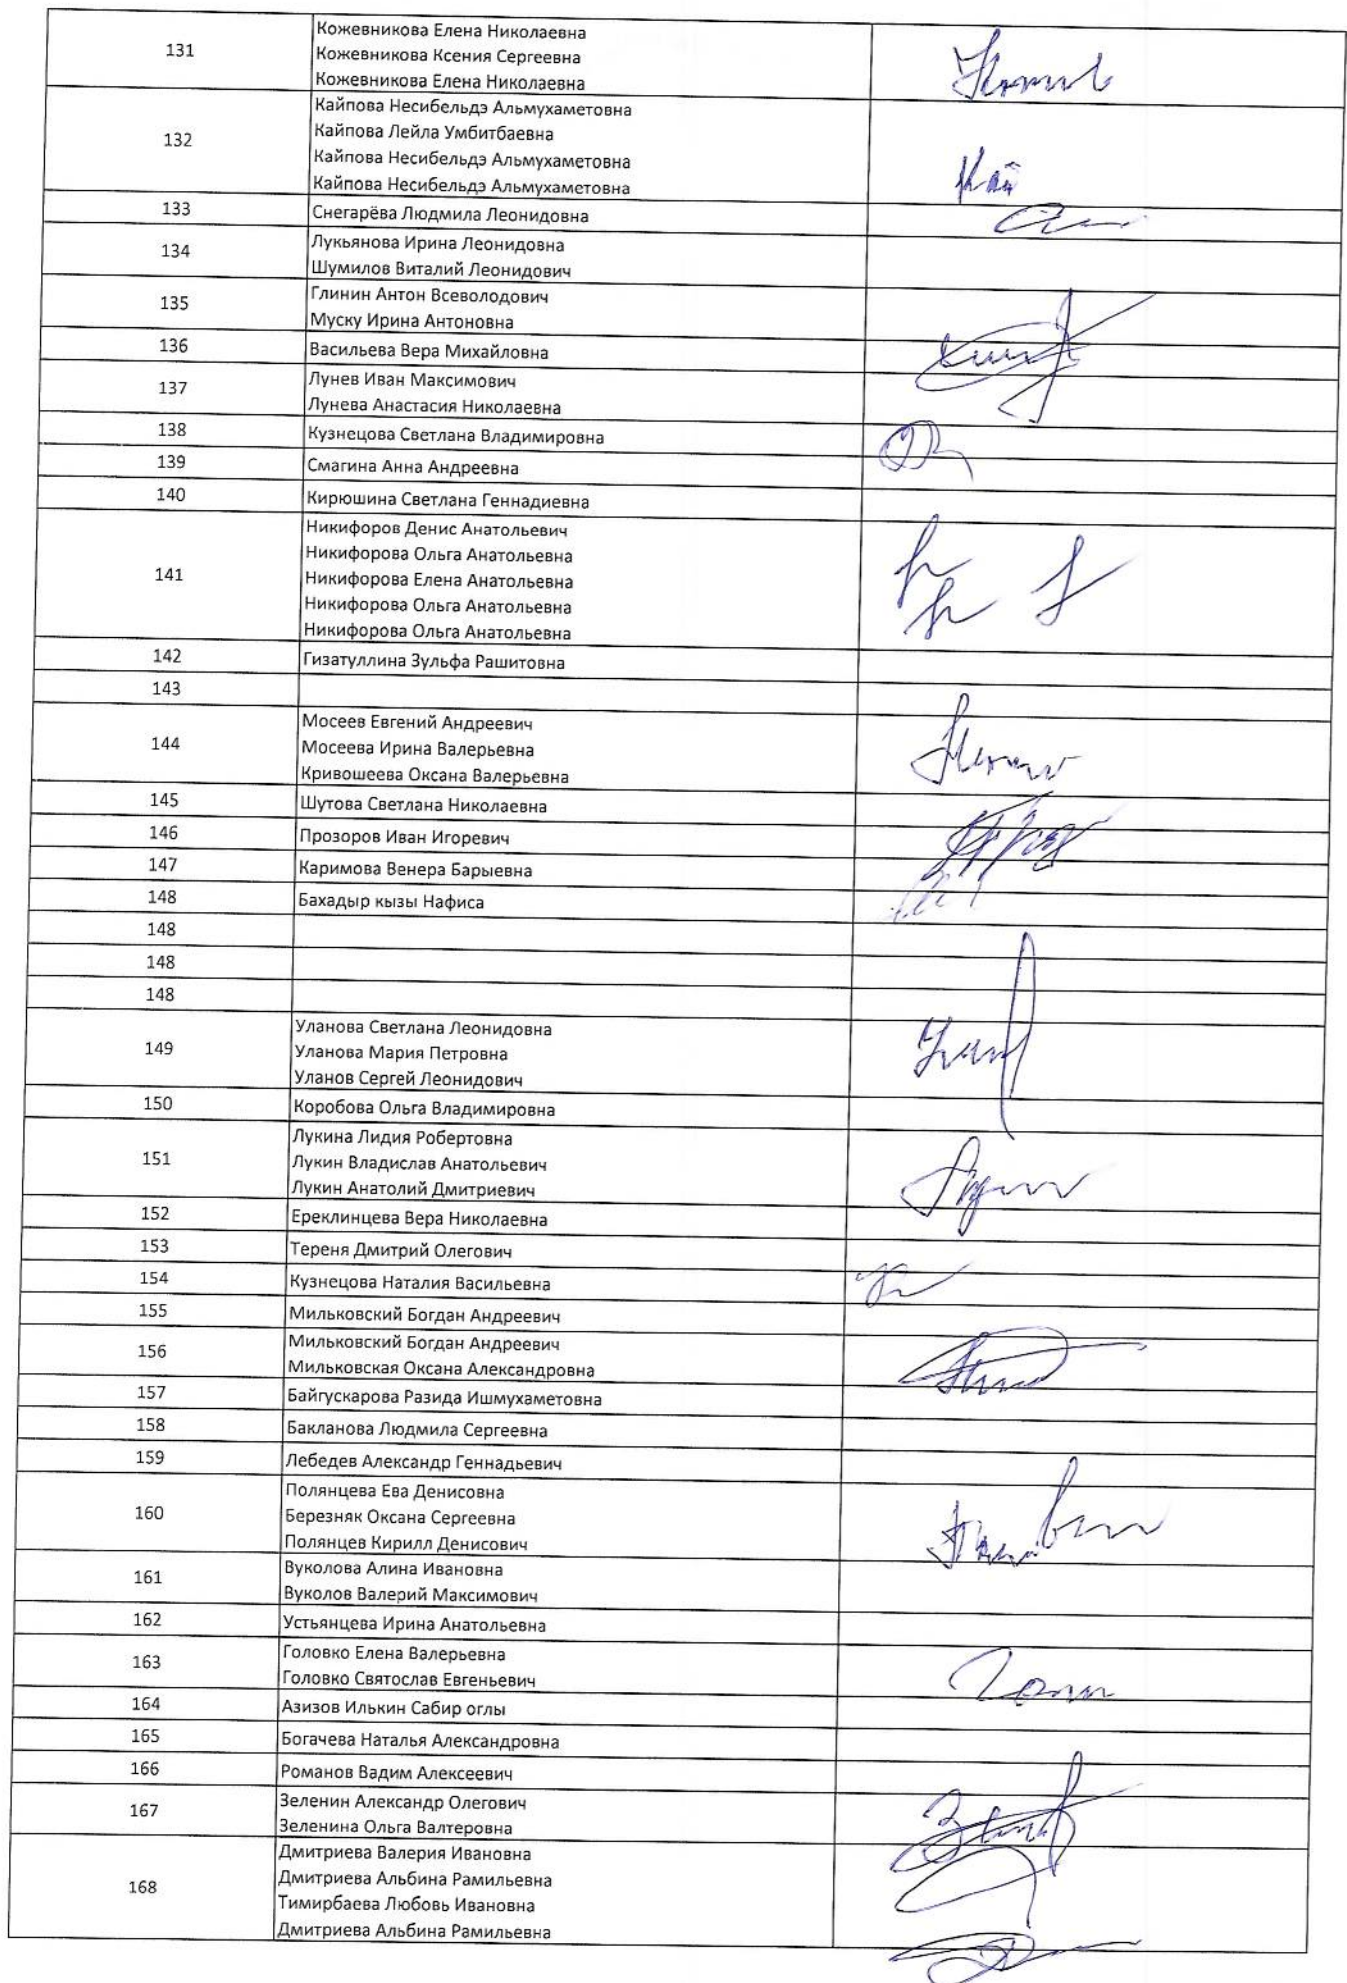 131
Кожевникова Елена Николаевна
Кожевникова Ксения Сергеевна
Кожевникова Елена Николаевна
132
Кайпова Несибельдэ Альмухаметовна
Кайпова Лейла Умбитбаевна
Кайпова Несибельдэ Альмухаметовна
Кайпова Несибельдэ Альмухаметовна
Кай
133 Снегарёва Людмила Леонидовна
134
Лукьянова Ирина Леонидовна
Шумилов Виталий Леонидович
135
Глинин Антон Всеволодович
Муску Ирина Антоновна
136 Васильева Вера Михайловна
137
Лунев Иван Максимович
Лунева Анастасия Николаевна
138 Кузнецова Светлана Владимировна
139 Смагина Анна Андреевна
140 Кирюшина Светлана Геннадиевна
141
Никифоров Денис Анатольевич
Никифорова Ольга Анатольевна
Никифорова Елена Анатольевна
Никифорова Ольга Анатольевна
Никифорова Ольга Анатольевна
142 Гизатуллина Зульфа Рашитовна
143
144
Мосеев Евгений Андреевич
Мосеева Ирина Валерьевна
Кривошеева Оксана Валерьевна
145 Шутова Светлана Николаевна
146 Прозоров Иван Игоревич
147 Каримова Венера Барыевна
148 Бахадыр кызы Нафиса
148
148
148
149
Уланова Светлана Леонидовна
Уланова Мария Петровна
Уланов Сергей Леонидович
150 Коробова Ольга Владимировна
151
Лукина Лидия Робертовна
Лукин Владислав Анатольевич
Лукин Анатолий Дмитриевич
152 Ереклинцева Вера Николаевна
153 Тереня Дмитрий Олегович
154 Кузнецова Наталия Васильевна
155 Мильковский Богдан Андреевич
156
Мильковский Богдан Андреевич
Мильковская Оксана Александровна
157 Байгускарова Разида Ишмухаметовна
158 Бакланова Людмила Сергеевна
159 Лебедев Александр Геннадьевич
160
Полянцева Ева Денисовна
Березняк Оксана Сергеевна
Полянцев Кирилл Денисович
161
Вуколова Алина Ивановна
Вуколов Валерий Максимович
162 Устьянцева Ирина Анатольевна
163
Головко Елена Валерьевна
Головко Святослав Евгеньевич
164 Азизов Илькин Сабир оглы
165 Богачева Наталья Александровна
166 Романов Вадим Алексеевич
167
Зеленин Александр Олегович
Зеленина Ольга Валтеровна
168
Дмитриева Валерия Ивановна
Дмитриева Альбина Рамильевна
Тимирбаева Любовь Ивановна
Дмитриева Альбина Рамильевна